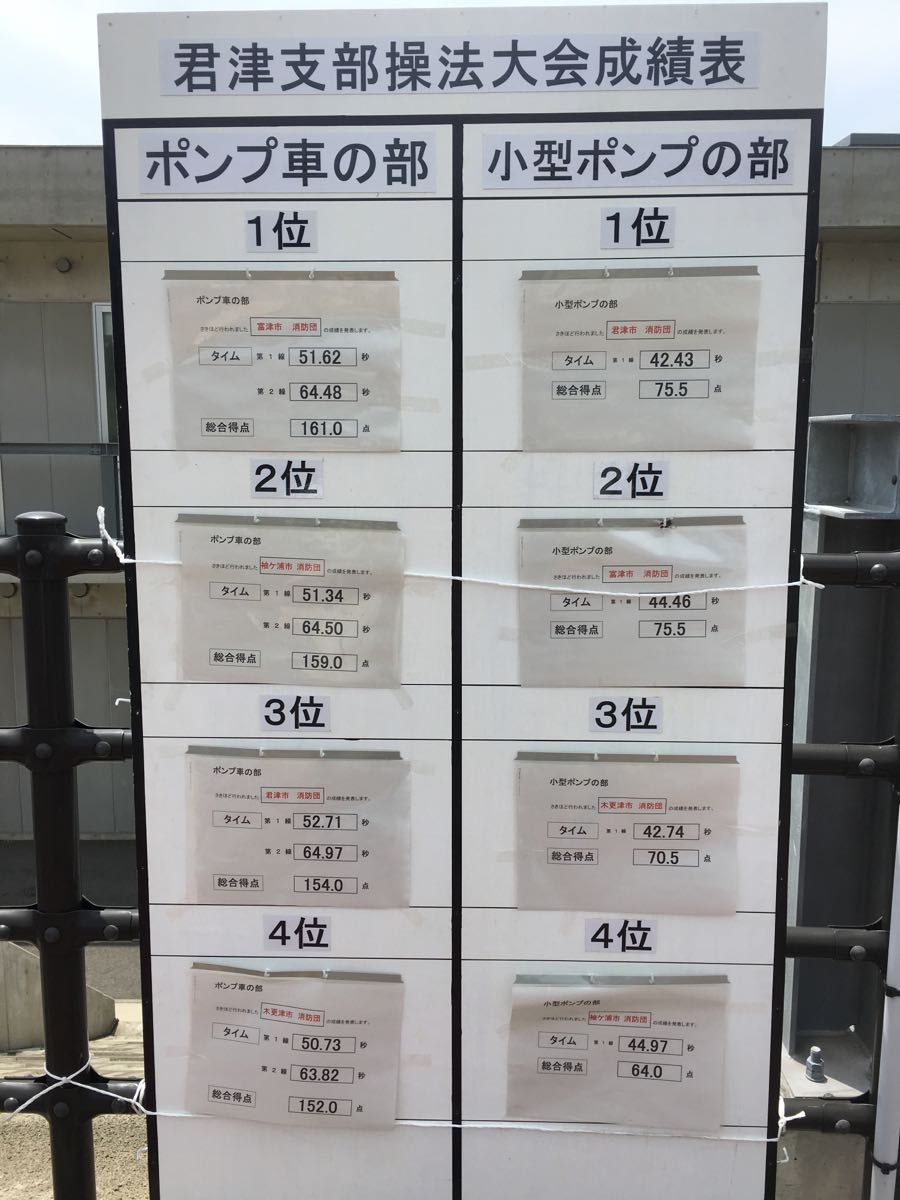 君津支部操法大会成績表
ポンプ車の部
1位
ポンプ車の部
さきほど行われました 富津市 消防団 の成績を発表します。
タイム 第1線 51.62 秒
第2線 64.48 秒
総合得点 161.0 点
2位
ポンプ車の部
さきほど行われました 袖ケ浦市 消防団 の成績を発表します。
タイム 第1線 51.34 秒
第2線 64.50 秒
総合得点 159.0 点
3位
ポンプ車の部
さきほど行われました 君津市 消防団 の成績を発表します。
タイム 第1線 52.71 秒
第2線 64.97 秒
総合得点 154.0 点
4位
ポンプ車の部
さきほど行われました 木更津市 消防団 の成績を発表します。
タイム 第1線 50.73 秒
第2線 63.82 秒
総合得点 152.0 点
小型ポンプの部
1位
小型ポンプの部
さきほど行われました 君津市 消防団 の成績を発表します。
タイム 第1線 42.43 秒
総合得点 75.5 点
2位
小型ポンプの部
さきほど行われました 富津市 消防団 の成績を発表します。
タイム 第1線 44.46 秒
総合得点 75.5 点
3位
小型ポンプの部
さきほど行われました 木更津市 消防団 の成績を発表します。
タイム 第1線 42.74 秒
総合得点 70.5 点
4位
小型ポンプの部
さきほど行われました 袖ケ浦市 消防団 の成績を発表します。
タイム 第1線 44.97 秒
総合得点 64.0 点